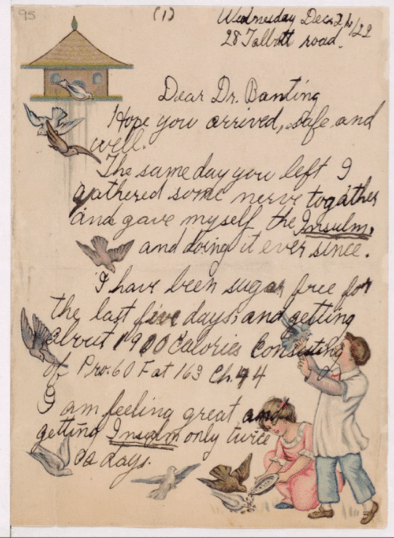 95
(1)
Wednesday Dec 24/22
28 Talbott road.
Dear Dr. Banting
Hope you arrived, safe and
well.
The same day you left I
gathered some nerve togather
and gave myself the Insulin.
and doing it ever since.
I have been sugar free for
the last five days and getting
about 1900 Calories Consisting
of Pro. 60 Fat 163 Ch. 94
I am feeling great and
getting Insulin only twice
a days.